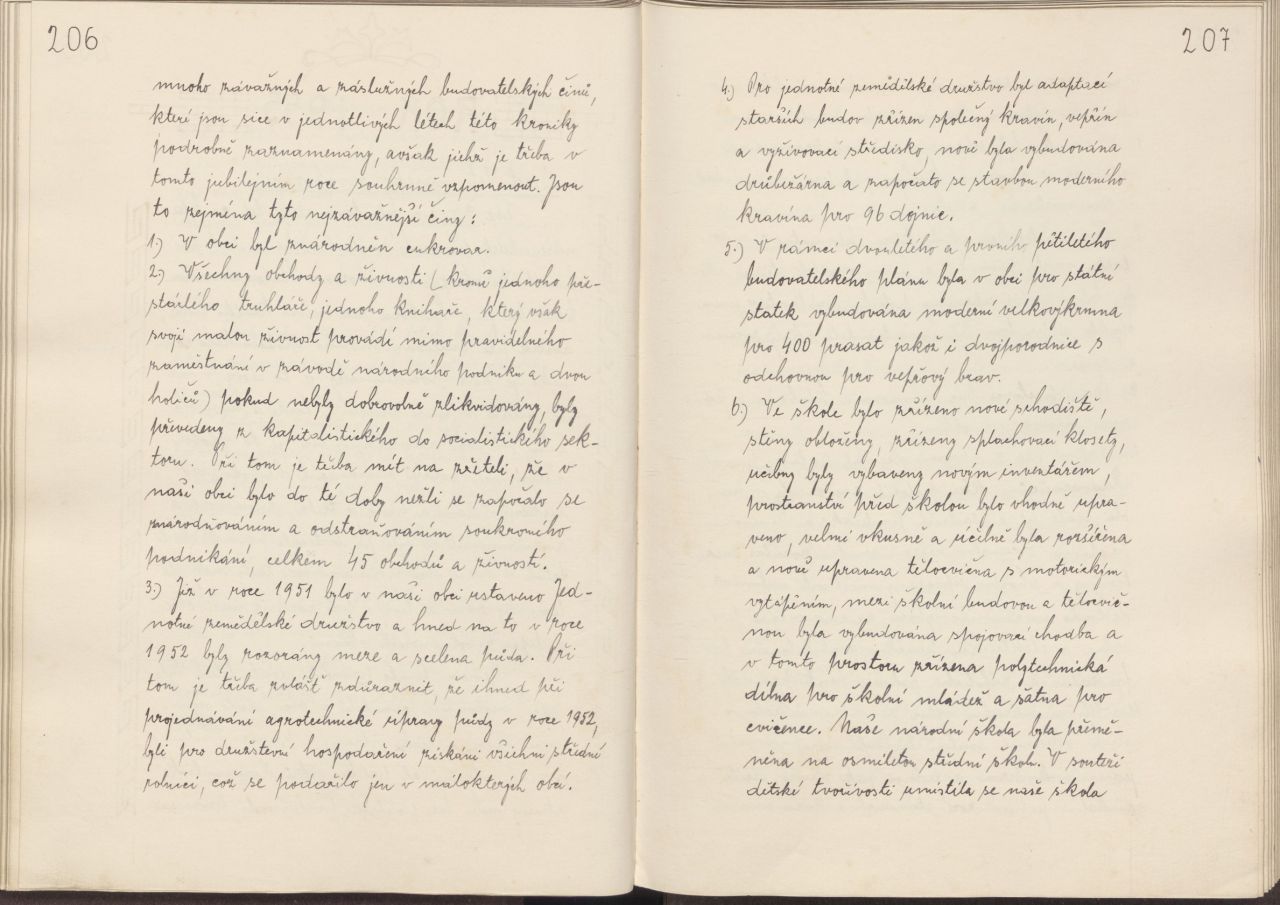 206
mnoho závažných a záslužných budovatelských činů,
které jsou sice v jednotlivých létech této kroniky
podrobně zaznamenány, avšak jichž je třeba v
tomto jubilejním roce souhrnně vzpomenout. Jsou
to zejména tyto nejzávažnější činy:
1.) V obci byl znárodněn cukrovar.
2.) Všechny obchody a živnosti (kromě jednoho pře-
stárlého truhláře, jednoho knihaře, který však
svoji malou živnost provádí mimo pravidelného
zaměstnání v závodě národního podniku a dvou
holičů) pokud nebyly dobrovolně zlikvidovány, byly
převedeny z kapitalistického do socialistického sek-
toru. Při tom je třeba mít na zřeteli, že v
naší obci bylo do té doby nežli se započalo se
znárodňováním a odstraňováním soukromého
podnikání, celkem 45 obchodů a živností.
3.) Již v roce 1951 bylo v naší obci ustaveno Jed-
notné zemědělské družstvo a hned na to v roce
1952 byly rozorány meze a scelena půda. Při
tom je třeba zvlášť zdůraznit, že ihned při
projednávání agrotechnické úpravy půdy v roce 1952,
byli pro družstevní hospodaření získáni všichni střední
rolníci, což se podařilo jen v málokterých obcí.
207
4.) Pro jednotné zemědělské družstvo byl adaptací
starších budov zřízen společný kravín, vepřín
a vyživovací středisko, nově byla vybudována
drůbežárna a započato se stavbou moderního
kravína pro 96 dojnic.
5.) V rámci dvouletého a prvníh pětiletého
budovatelského plánu byla v obci pro státní
statek vybudována moderní velkovýkrmna
pro 400 prasat jakož i dvojporodnice s
odchovnou pro vepřový brav.
6.) Ve škole bylo zřízeno nové schodiště,
stěny obloženy, zřízeny splachovací klosety,
učebny byly vybaveny novým inventářem,
prostranství před školou bylo vhodně upra-
veno, velmi vkusně a účelně byla rozšířena
a nově upravena tělocvična s motorickým
vytápěním, mezi školní budovou a tělocvič-
nou byla vybudována spojovací chodba a
v tomto prostoru zřízena polytechnická
dílna pro školní mládež a šatna pro
cvičence. Naše národní škola byla přemě-
něna na osmiletou střední školu. V soutěži
dětské tvořivosti umístila se naše škola